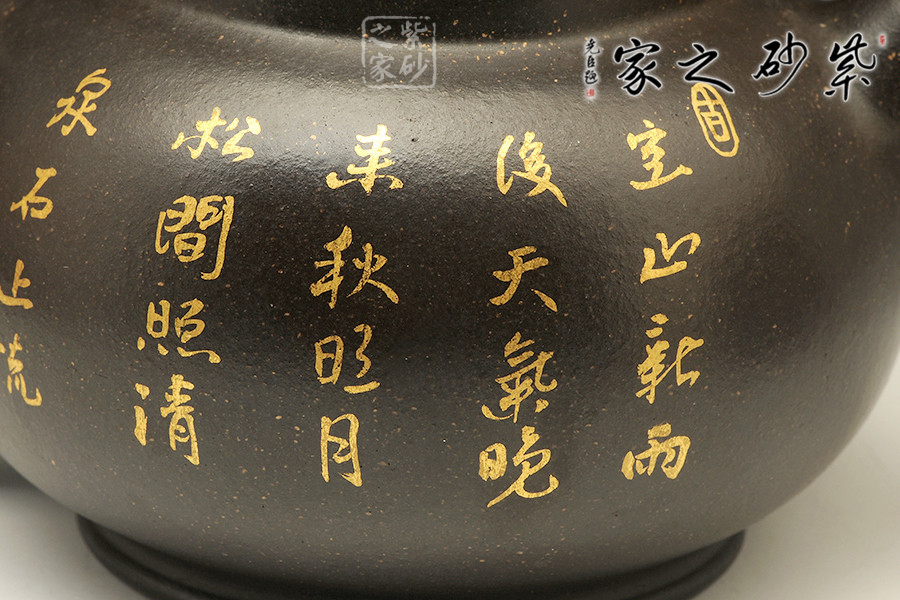 空山新雨
後天氣晚
来秋明月
松間照清
泉石上流
紫砂之家
紫砂之家